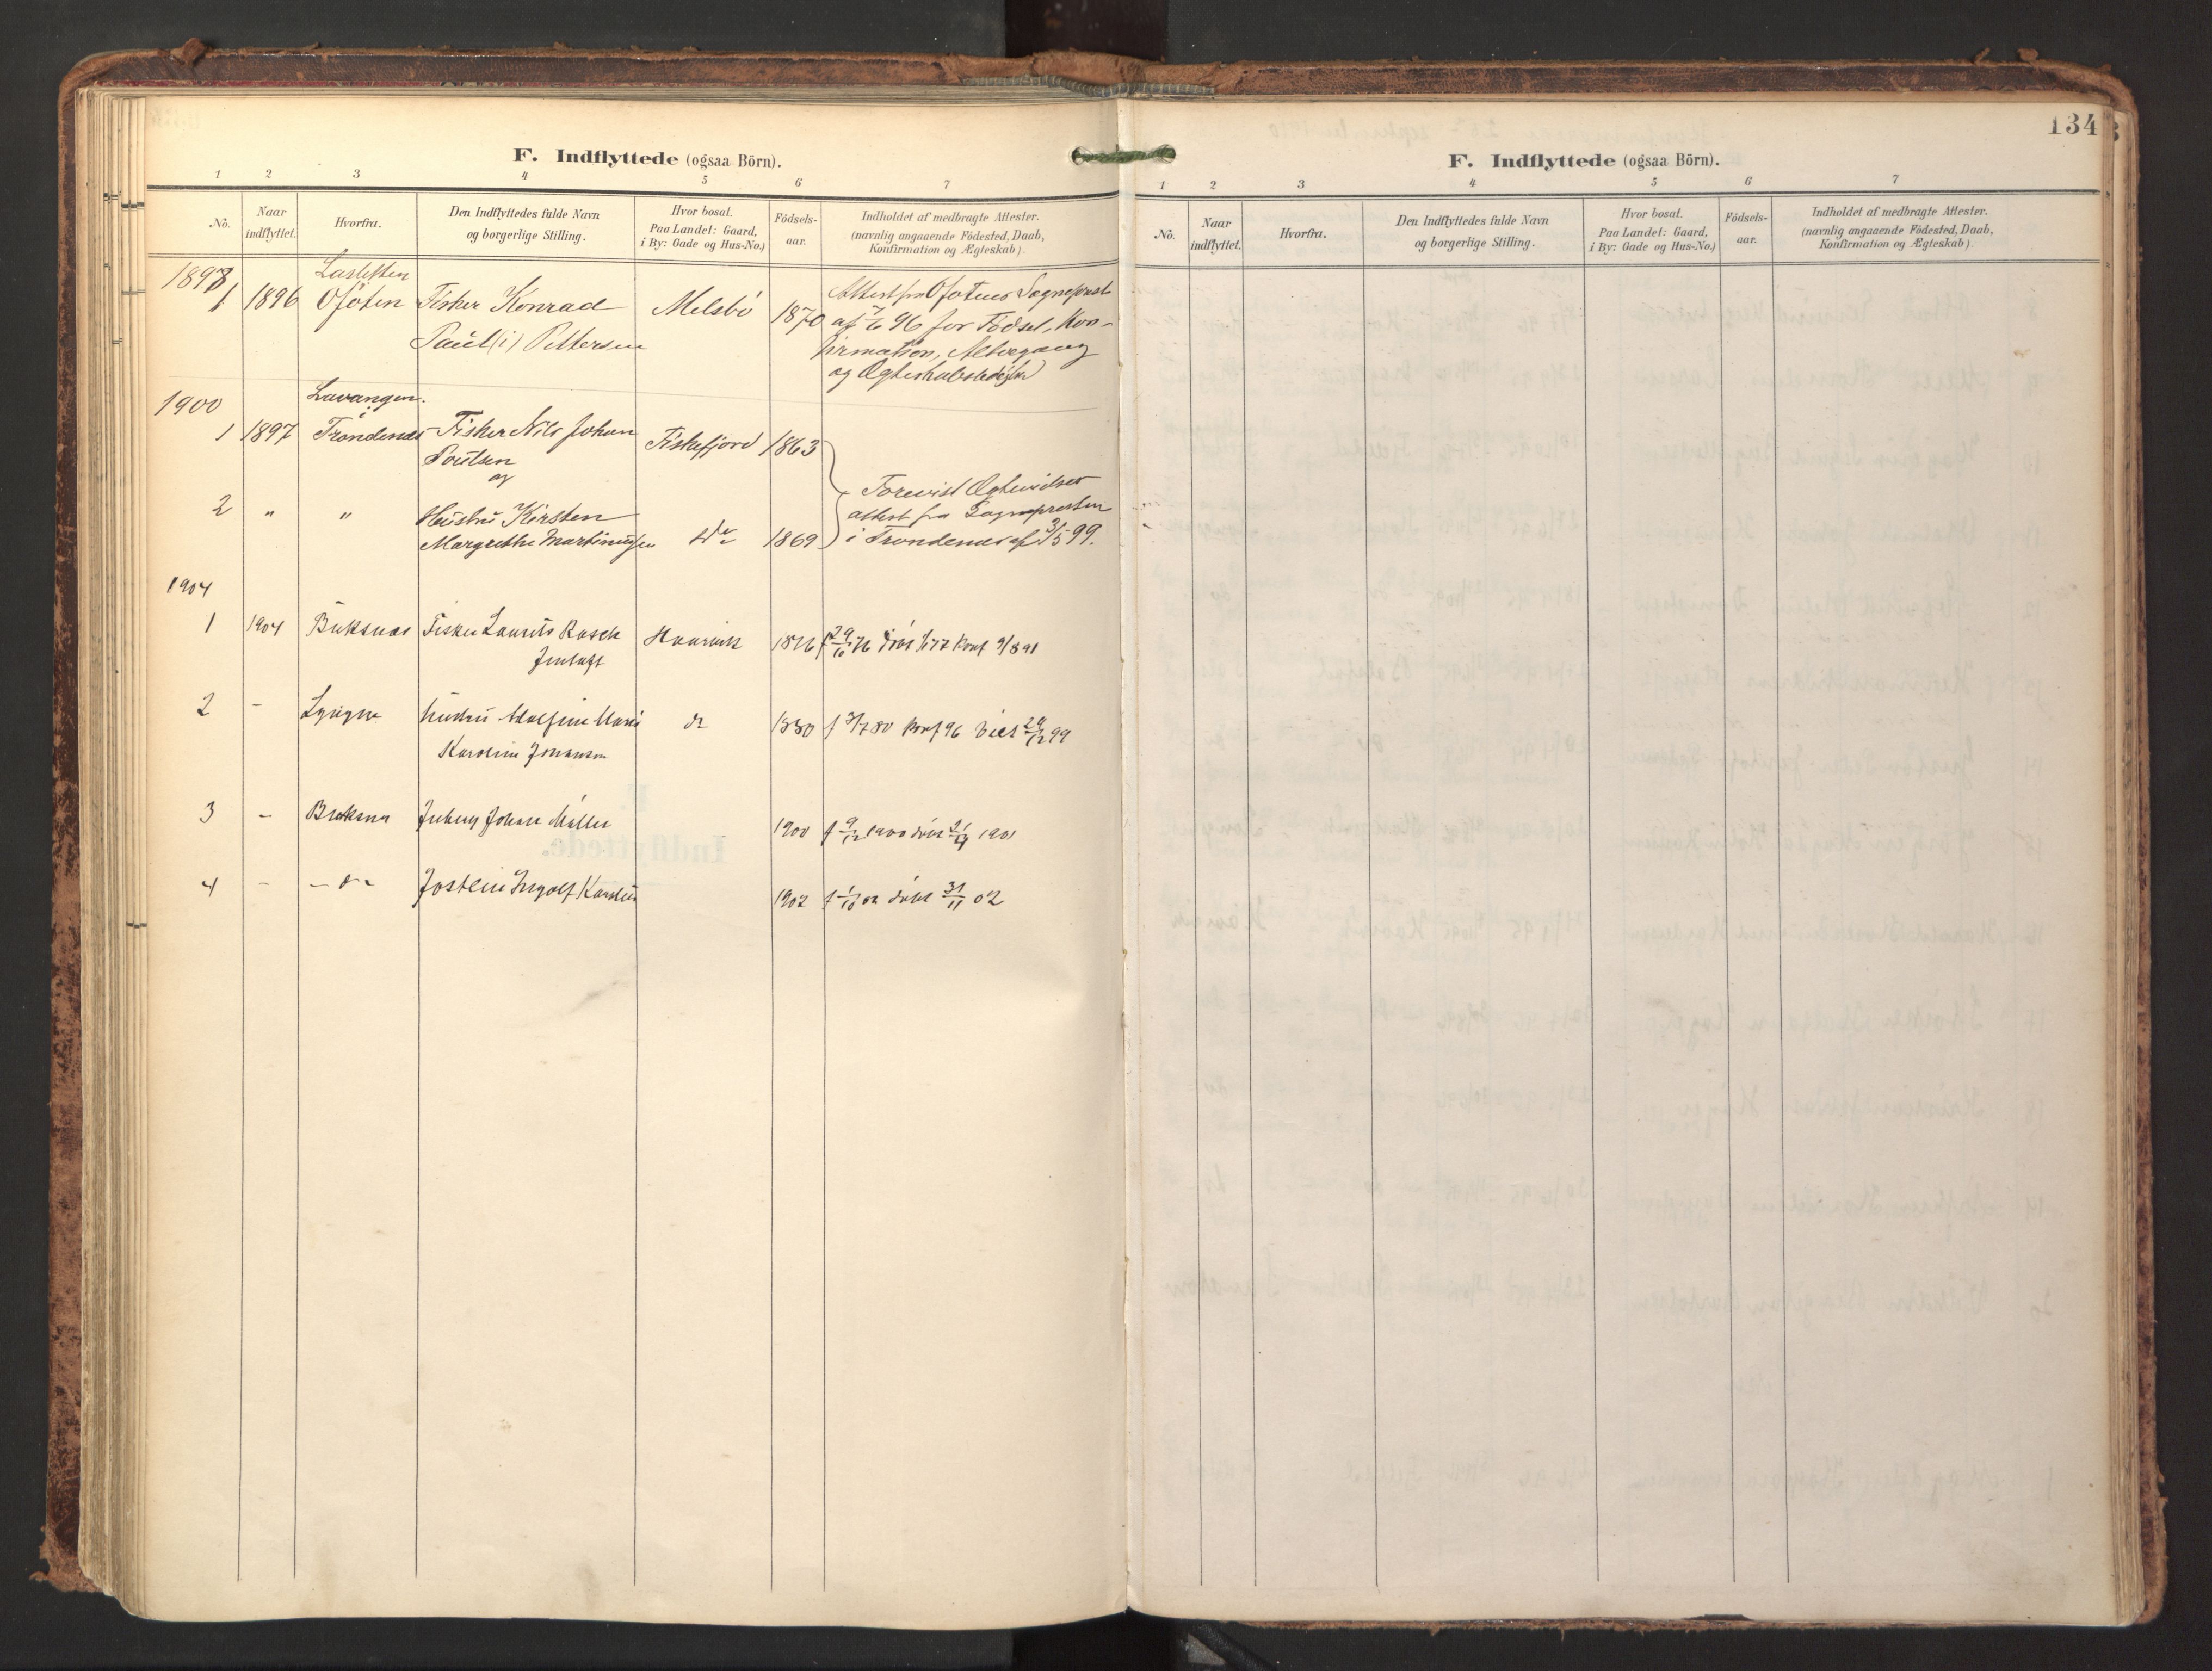 F. Indflyttede (ogsaa Börn).
1 2 3 4 5 6 7
No.
Naar
indflyttet.
Hvorfra.
Den Indflyttedes fulde Navn
og borgerlige Stilling.
Hvor bosat.
Paa Landet: Gaard,
i By: Gade og Hus-No.)
Födsels-
aar.
Indholdet af medbragte Attester.
(navnlig angaaende Födested, Daab,
Konfirmation og Ægteskab).
1898
1 1896 Ofoten Fisker Konrad
Paul(i) Pettersen
Melsbö 1870
Attest fra Ofotens Sogneprest
96 for Födsel, Kon-
firmation, Altergang
og
1900 Lavangen
1 1897 Trondenæs Fisker Nils Johan
Poulsen
og
Fiskefjord 1863
2 " " Hustru Kirsten
Margrethe Martinussen do 1869
Forevist
attest fra Sognepresten
i Trondenæs af 3/5 99.
1904
1 1904 Buksnæs Fisker Laurits Rasch
Jentoft
1876 f 29/10 76 döbt 1/1 77 konf 9/8 91
2 - Hustru Adolfine Marie
Karoline Johansen
do 1880 f 3/7 80 konf 96 viet 29/12 99
3 - Buksnæs Johan Müller 1900 f 9/12 1900 döbt 21/4 1901
4 - - do - Jostein Ingolf 1902 f 1/10 02 döbt 31/11 02
134
F. Indflyttede (ogsaa Börn).
1 2 3 4 5 6 7
No.
Naar
indflyttet.
Hvorfra.
Den Indflyttedes fulde Navn
og borgerlige Stilling.
Hvor bosat.
Paa Landet: Gaard,
i By: Gade og Hus-No.)
Födsels-
aar.
Indholdet af medbragte Attester.
(navnlig angaaende Födested, Daab,
Konfirmation og Ægteskab).